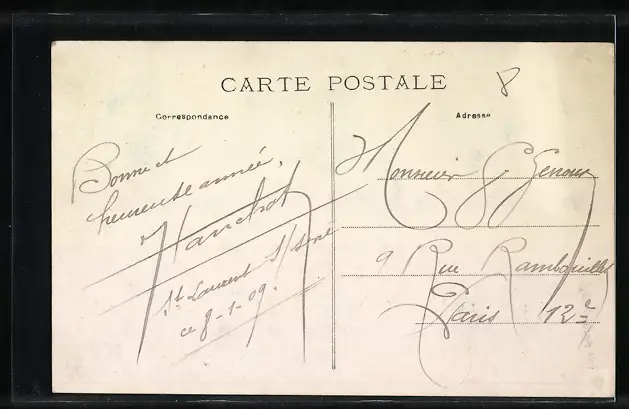 CARTE POSTALE
8
Correspondance
Adresse
Bonne et
heureuse année,
St Laurent S/
ce 8-1-09.
Monsieur G. Genoux
9 Rue Rambouillet
Paris 12e